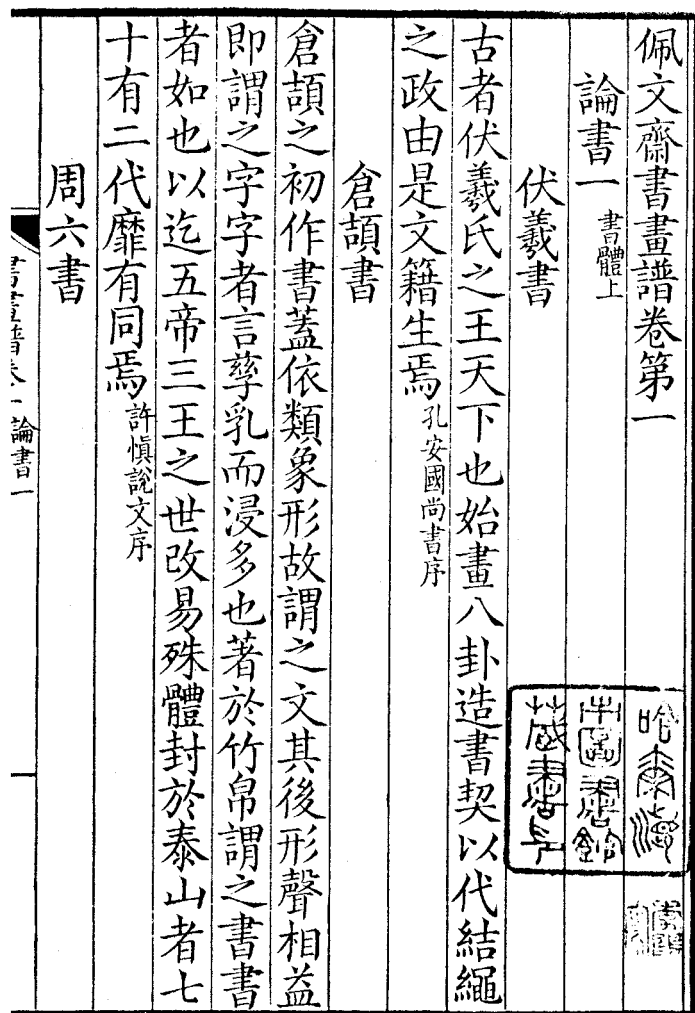 佩文齋書畫譜卷第一
論書一 書體上
伏羲書
古者伏羲氏之王天下也始畫八卦造書契以代結繩
之政由是文籍生焉 孔安國尚書序
倉頡書
倉頡之初作書蓋依類象形故謂之文其後形聲相益
即謂之字字者言孳乳而浸多也著於竹帛謂之書書
者如也以迄五帝三王之世改易殊體封於泰山者七
十有二代靡有同焉 許慎說文序
周六書
書畫譜卷一 論書一
哈佛大